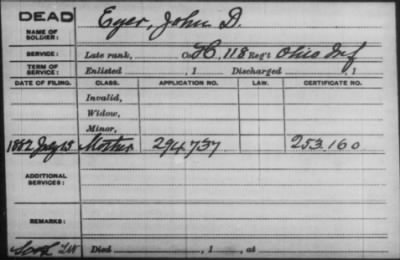 DEAD
NAME OF SOLDIER: Eyer, John D.
SERVICE: Late rank, Co. H, 118 Reg't Ohio Inf
TERM OF SERVICE: Enlisted , 1 Discharged , 1
DATE OF FILING. CLASS. APPLICATION NO. LAW. CERTIFICATE NO.
Invalid,
Widow,
Minor,
1882 July 15 Mother 294737 253.160
ADDITIONAL SERVICES:
REMARKS:
Died , 1 , at